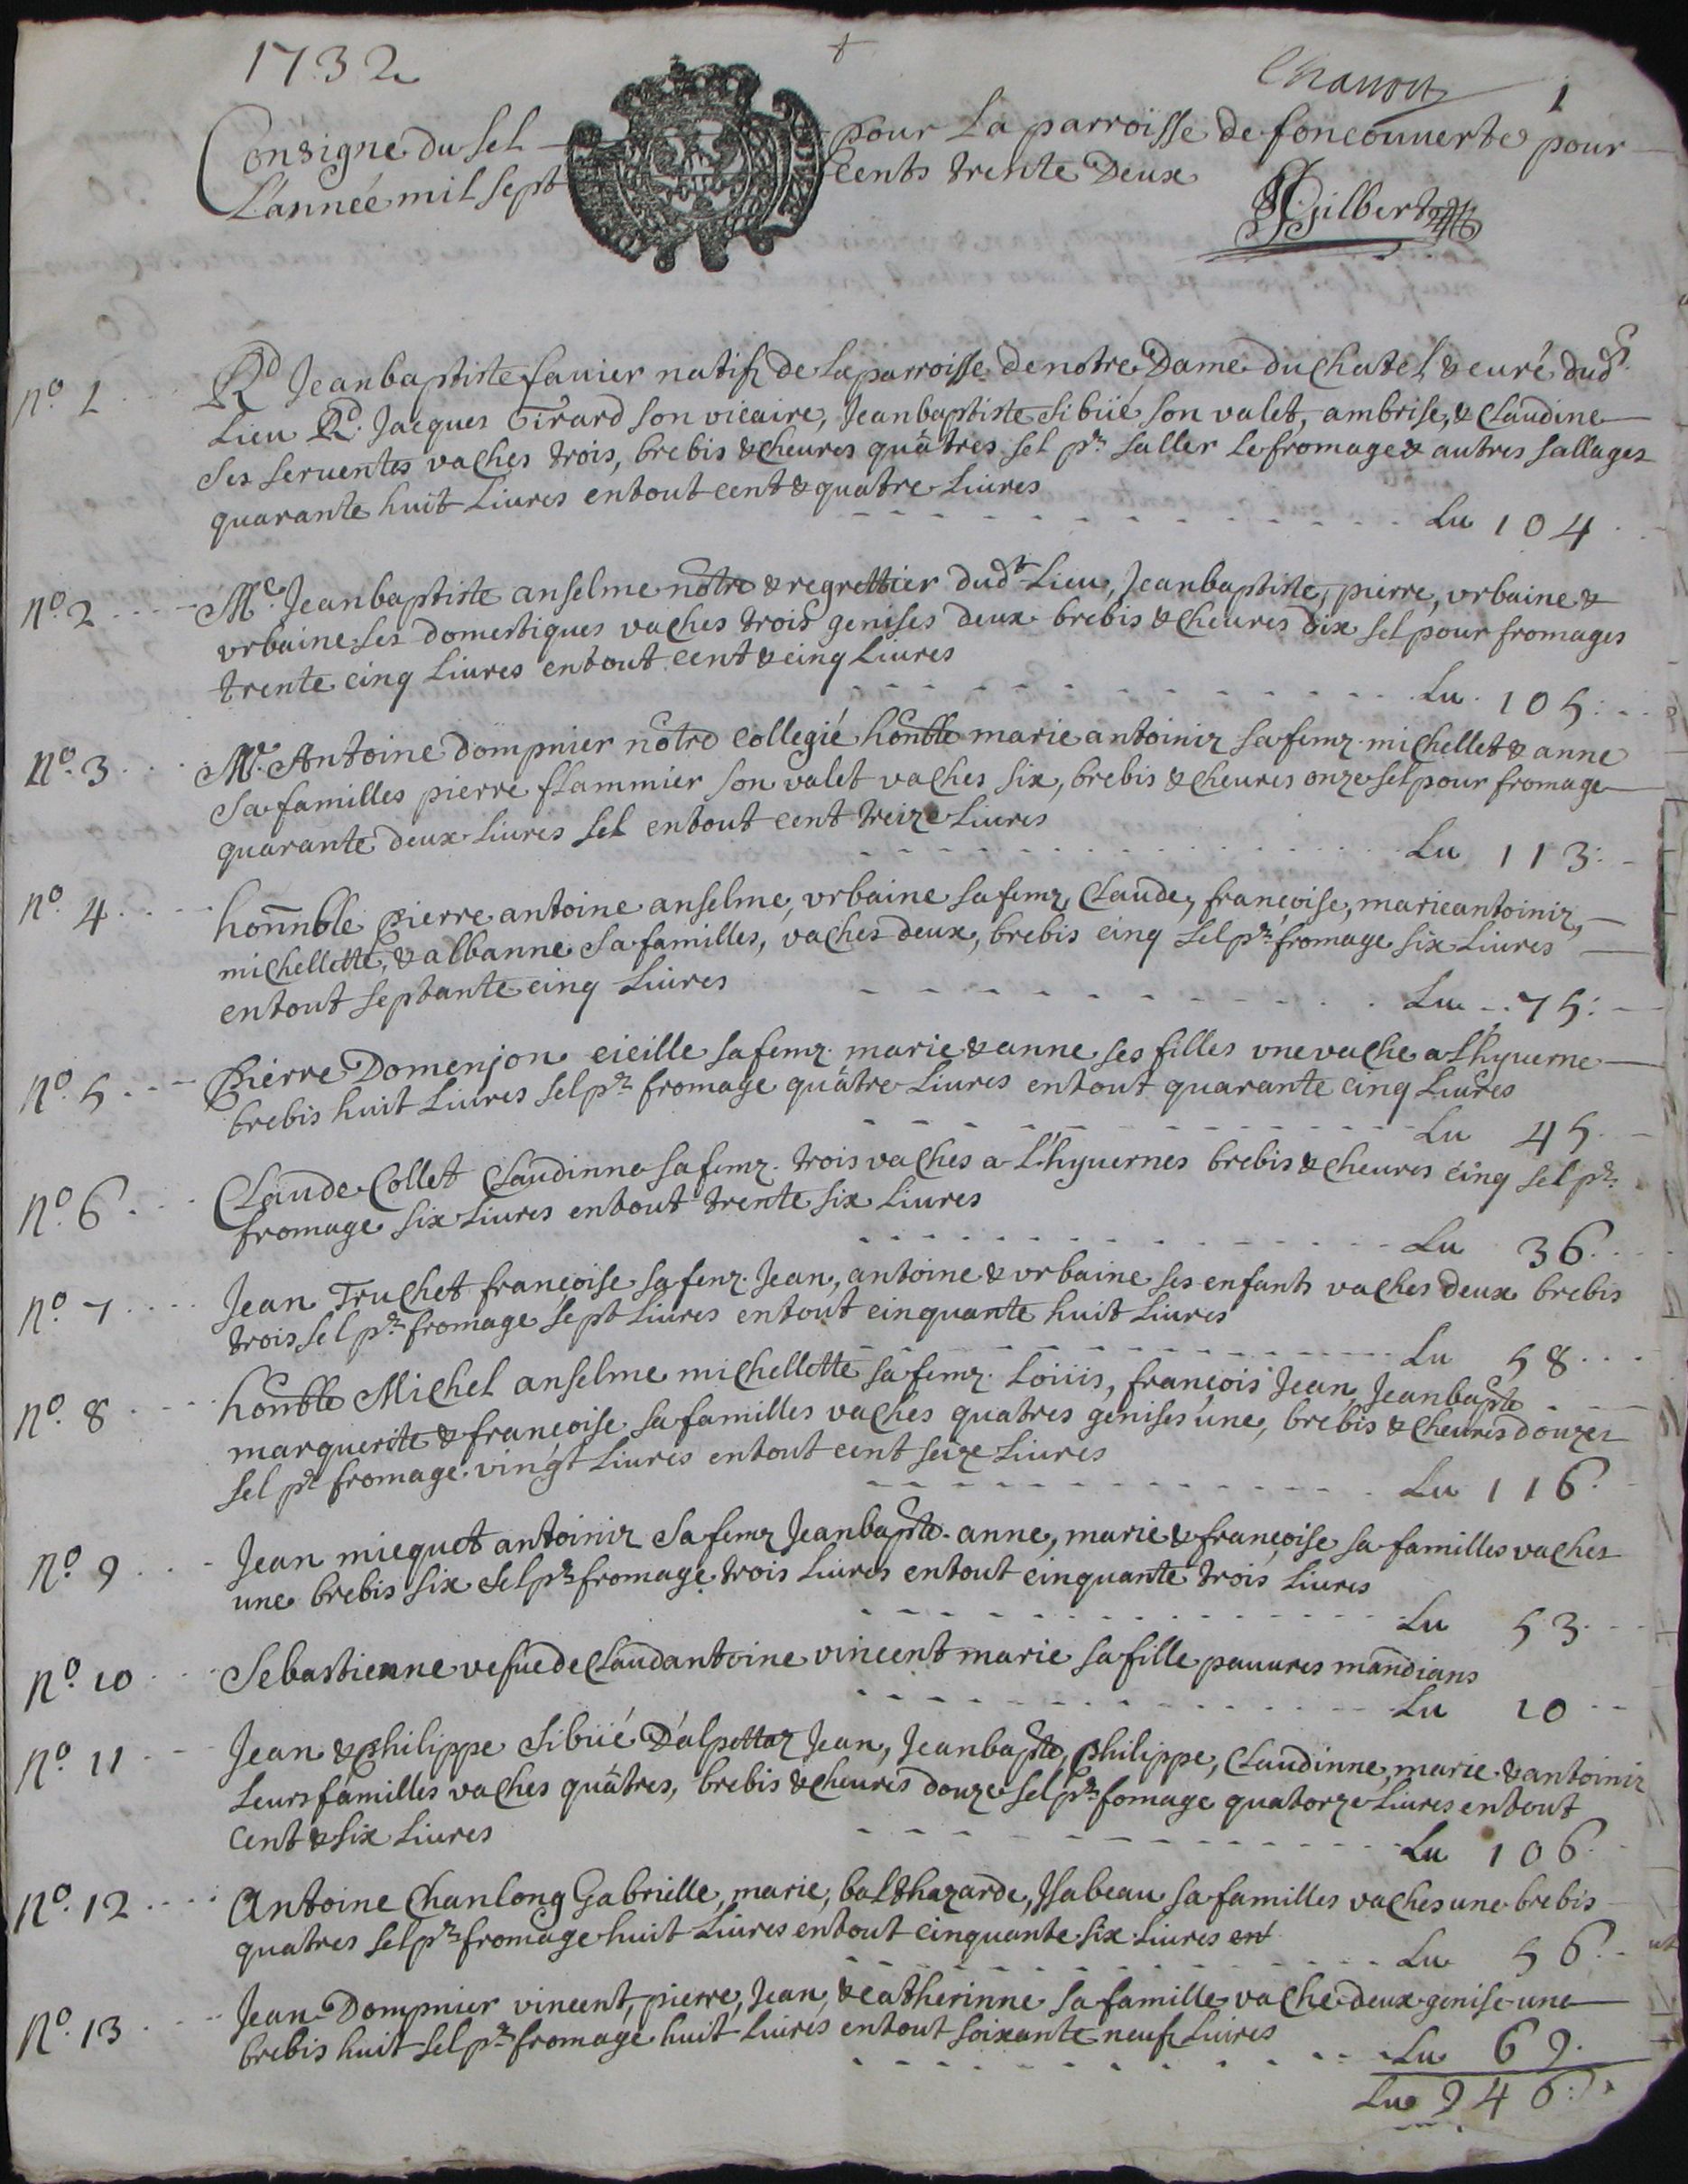 1732
1
Consigne du sel pour La parroisse de foncouuerte pour
L'année mil sept cents trente Deux
Gilbert
nº 1 Rd Jeanbaptiste fauier natif de La parroisse de notre Dame du Chatel & curé dud.
Lieu Rd. Jacques Girard son vicaire, Jeanbaptiste sibüé son valet, ambrise, & Claudine
ses seruentes vaches trois, brebis & cheures quâtres sel pr saller Le fromage & autres sallages
quarante huit Liures entout cent & quatre Liures
Lu 104
nº 2 Me Jeanbaptiste anselme notre & regrettier dudt Lieu, Jeanbaptiste, pierre, vrbaine &
vrbaine ses domestiques vaches trois genises deux brebis & cheures dix sel pour fromages
trente cinq Liures entout cent & cinq Liures
Lu 105
nº 3 Me. Antoine dompnier notre Collegié honnble marie antoiniz sa femz. michellet & anne
sa familles pierre flammier son valet vaches six, brebis & cheures onze sel pour fromage
quarante deux Liures sel entout cent treize Liures
Lu 113
nº 4 honnble Pierre antoine anselme, vrbaine sa femz, Claude, françoise, marieantoiniz,
michellette, & albanne sa familles, vaches deux, brebis cinq sel pr fromage six Liures
entout septante cinq Liures
Lu 75
nº 5 Pierre Domenjon cicille sa femz. marie & anne ses filles vne vache a Lhyuerne
brebis huit Liures sel pr fromage quâtre Liures entout quarante cinq Liures
Lu 45
nº 6 Claude Collet Claudinne sa femz. trois vaches a L'hyuernes brebis & cheures cinq sel pr
fromage six Liures entout trente six Liures
Lu 36
nº 7 Jean Truchet françoise sa femz. Jean, antoine & vrbaine ses enfants vaches deux brebis
trois sel pr fromage sept Liures entout cinquante huit Liures
Lu 58
nº 8 honnble Michel anselme michellette sa femz. Loüis, françois Jean, Jeanbapte
marguerite & françoise sa familles vaches quatres genises une, brebis & cheures douze
sel pr fromage vingt Liures entout cent seize Liures
Lu 116
nº 9 Jean micquet antoiniz sa femz Jeanbapte. anne, marie & françoise sa familles vaches
une brebis six sel pr fromage trois Liures entout cinquante trois Liures
Lu 53
nº 10 Sebastienne vefue de Claud antoine vincent marie sa fille pauures mandians
Lu 10
nº 11 Jean & philippe sibüé D'alpettaz Jean, Jeanbapte, philippe, Claudinne, marie & antoiniz
Leurs familles vaches quâtres, brebis & cheures douze sel pr fomage quatorze Liures entout
Cent & six Liures
Lu 106
nº 12 Antoine Chanlong Gabrielle, marie, balthazarde, Jsabeau sa familles vaches une brebis
quatres sel pr fromage huit Liures entout cinquante six Liures et
Lu 56
nº 13 Jean Dompnier vincent, pierre, Jean, & catherinne sa famille vache deux genise une
brebis huit sel pr fromage huit Liures entout soixante neuf Liures
Lu 69
Lu 946